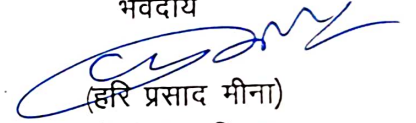 भवदीय
(हरि प्रसाद मीना)